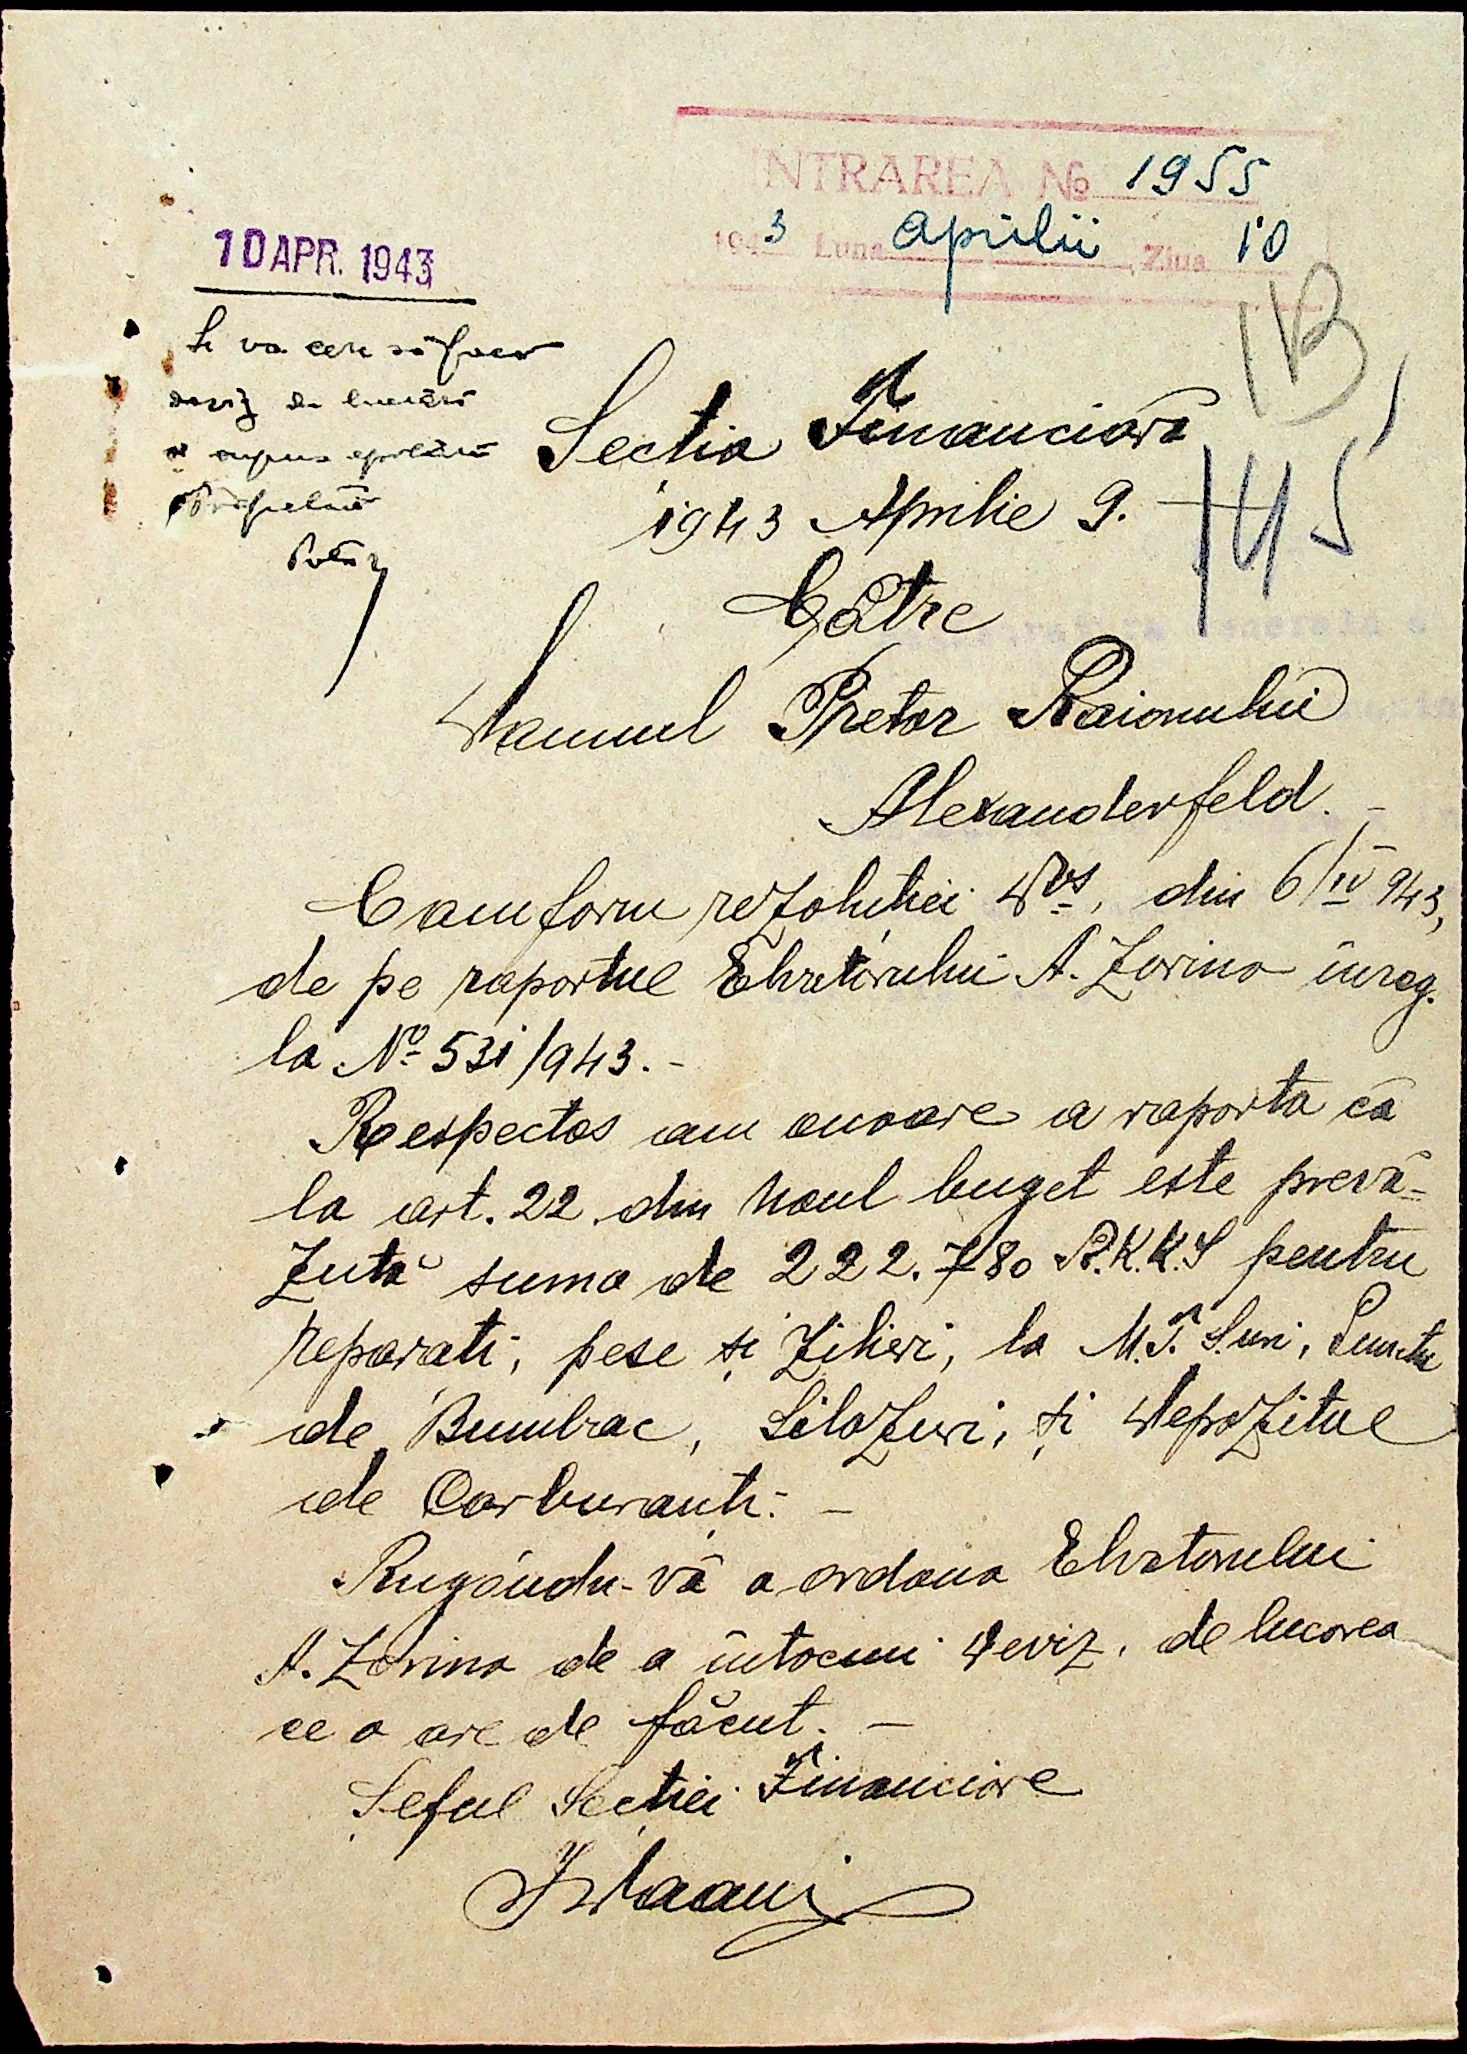 INTRAREA № 1955
1943 Luna Aprilii, Ziua 10
10 APR. 1943
Se va cere să facă
deviz de lucrări
a supune aprobării
1B
145
Sectia Financiară
1943 Aprilie 9.
Către
Domnul Pretor Raionului
Alexanderfeld. -
Conform rezolutiei Dvs, din 6/IV 943,
de pe raportul A. Zorina înreg.
la No 531/943. -
Respectos am onoare a raporta că
la art. 22 din noul buget este prevă-
zută suma de 222.780 R.K.K.S pentru
reparati, pese și zilieri, la M.T. S.uri, Punctu
de Bumbac, Silozuri, și Depozitul
de Carburanți. -
Rugându-vă a ordona
A. Zorina de a întocmi deviz, de lucarea
ce o are de făcut. -
Șeful Sectiei Financiare